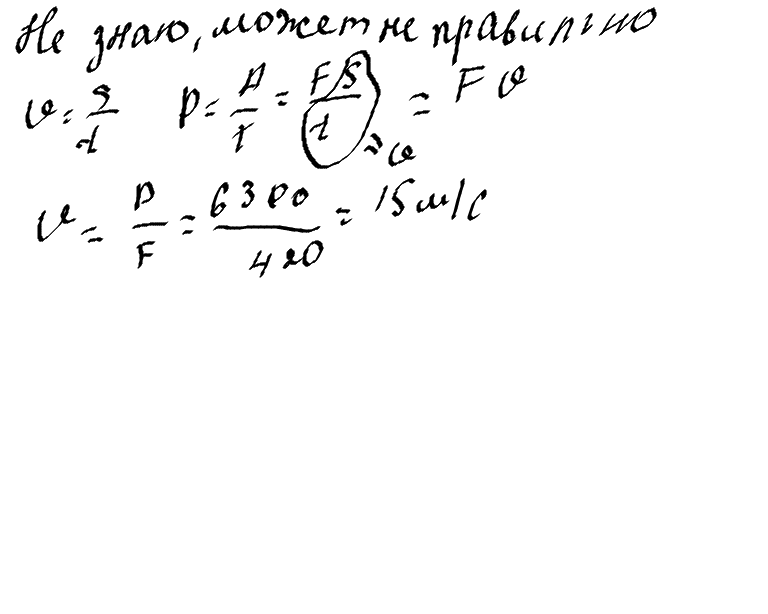 Не знаю, может не правильно
v = S/t P = A/t = FS/t = Fv
= v
v = P/F = 6300/420 = 15 м/с